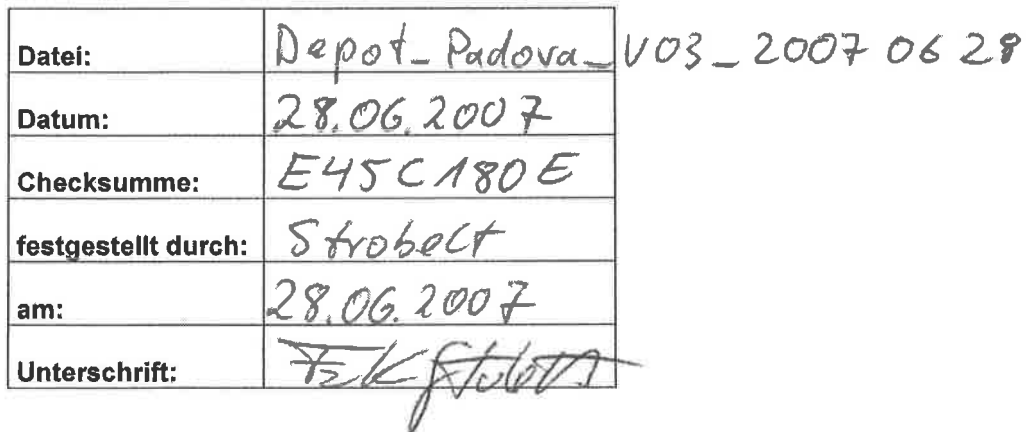 Datei: Depot_Padova_V03_2007 06 28
Datum: 28.06.2007
Checksumme: E45C180E
festgestellt durch: Strobelt
am: 28.06.2007
Unterschrift: